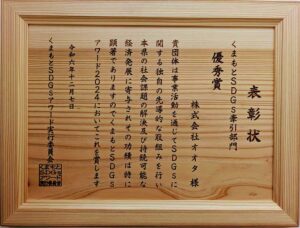 表彰状
くまもとSDGs牽引部門
優秀賞
株式会社オオタ 様
貴団体は事業活動を通じてSDGsに
関する独自の先導的な取組みを行い
本県の社会課題の解決及び持続可能な
経済発展に寄与されその功績は特に
顕著でありますのでくまもとSDGs
アワード2024においてこれを賞します
令和六年十二月七日
くまもとSDGsアワード実行委員会